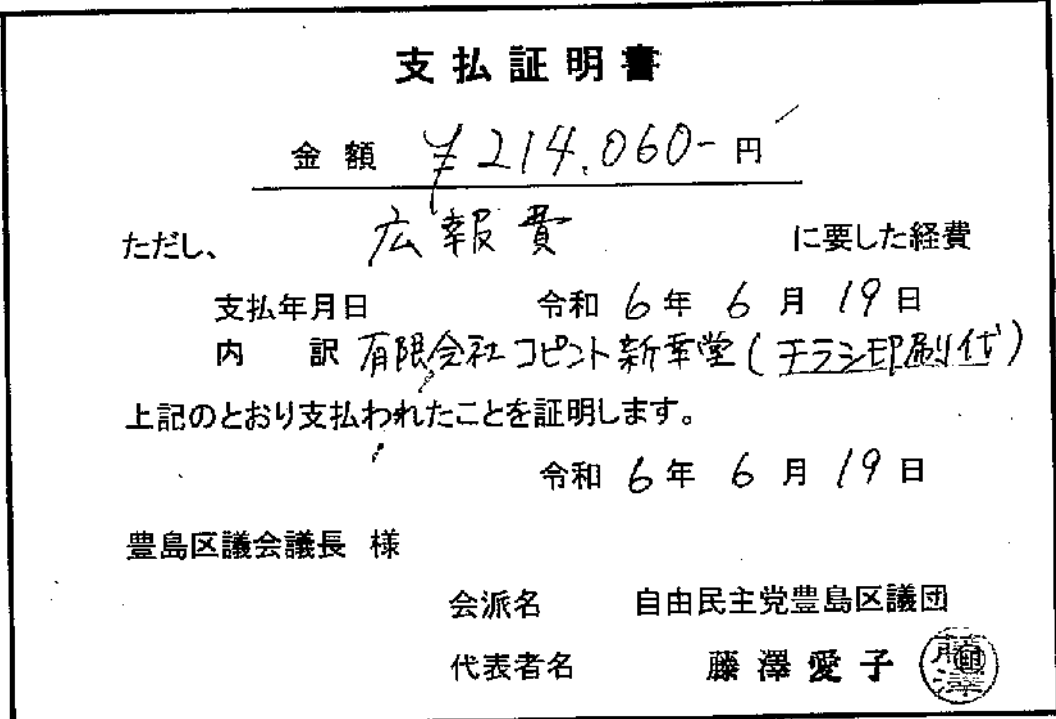 支払証明書
金額 ¥214,060- 円
ただし、 広報費 に要した経費
支払年月日 令和 6 年 6 月 19 日
内 訳 有限会社コピント新幸堂(チラシ印刷代)
上記のとおり支払われたことを証明します。
令和 6 年 6 月 19 日
豊島区議会議長 様
会派名 自由民主党豊島区議団
代表者名 藤澤愛子
藤澤